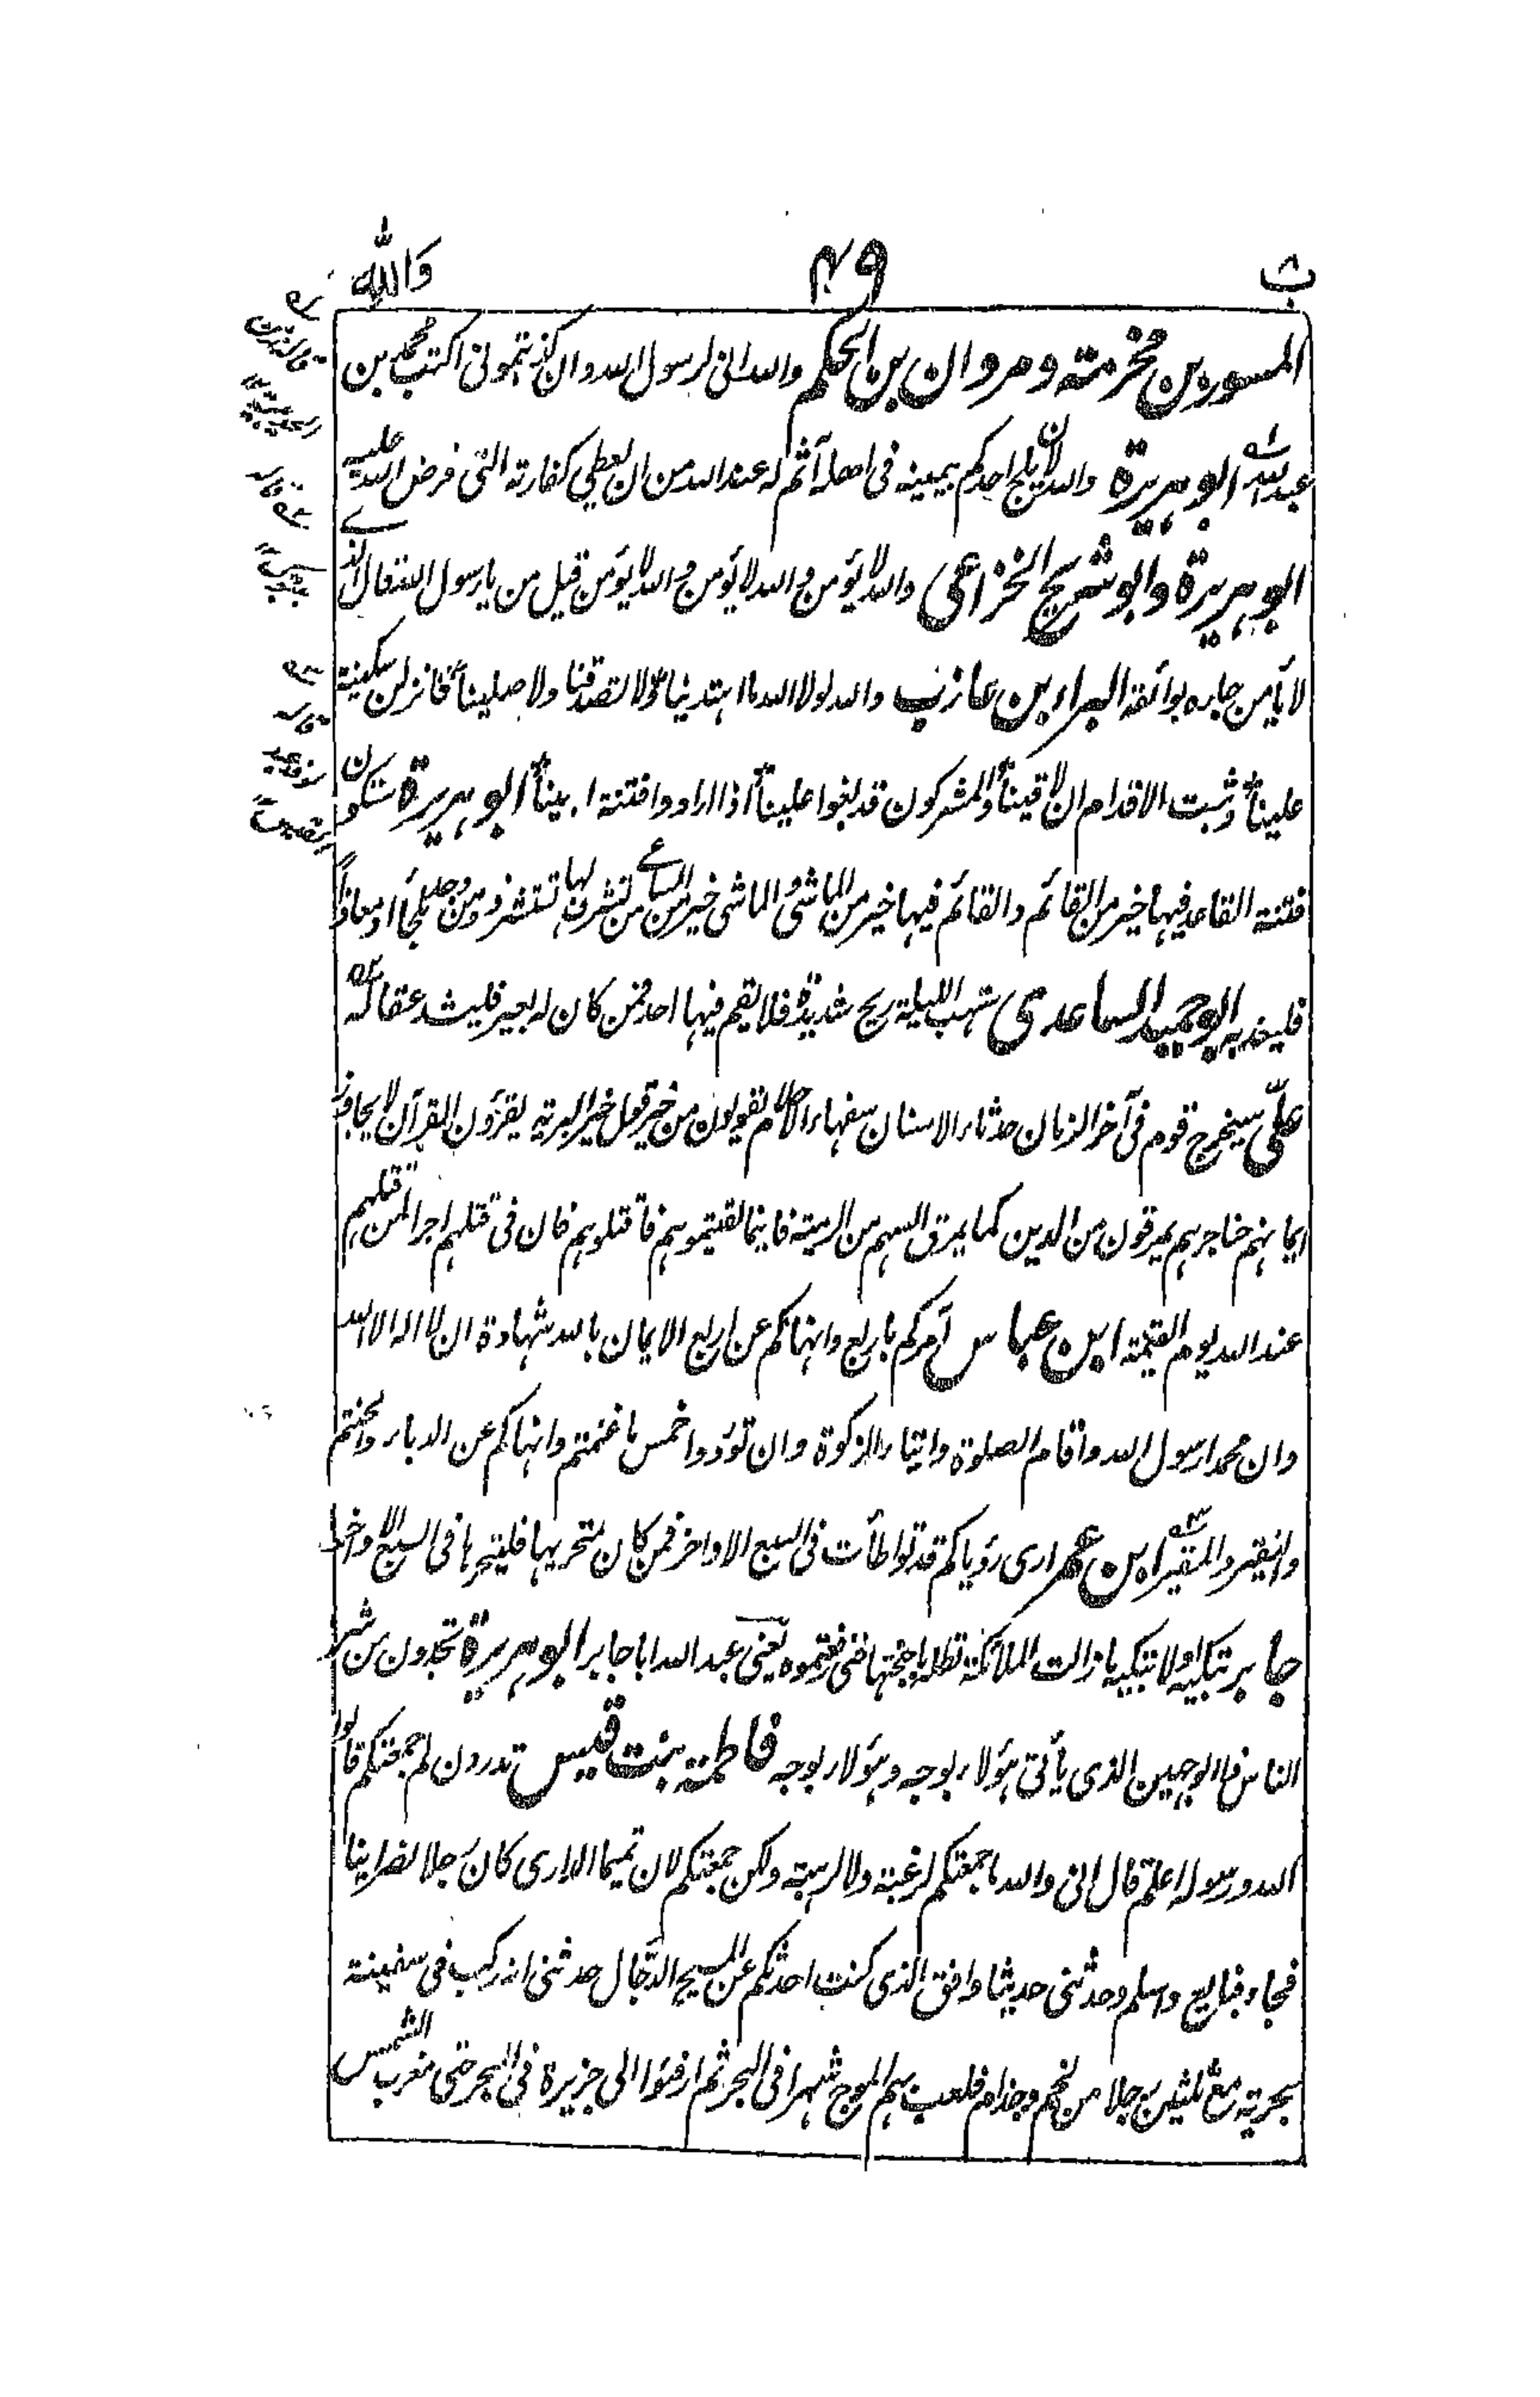 ب ٤٩ والله
المسور بن مخرمة ومروان بن الحكم والله انى لرسول الله وان كذبتمونى اكتب محمد بن
عبد الله ابو هريرة والله لان يلج احدكم بيمينه فى اهله آثم له عند الله من ان يعطي كفارته التى فرض الله عليه
ابو هريرة وابو شريح الخزاعى والله لا يؤمن والله لا يؤمن والله لا يؤمن قيل من يا رسول الله قال الذى
لا يأمن جاره بوائقه البراء بن عازب والله لولا الله ما اهتدينا ولا تصدقنا ولا صلينا فانزلن سكينة
علينا وثبت الاقدام ان لاقينا والمشركون قد بغوا علينا اذا ارادوا فتنة ابينا ابو هريرة ستكون
فتنة القاعد فيها خير من القائم والقائم فيها خير من الماشى والماشى خير من الساعى من تشرف لها تستشرفه ومن وجد ملجأ او معاذا
فليعذ به ابو حميد الساعدى ستهب الليلة ريح شديدة فلا يقم فيها احد فمن كان له بعير فليشد عقاله
على سيخرج قوم فى آخر الزمان حدثاء الاسنان سفهاء الاحلام يقولون من خير قول خير البرية يقرؤن القرآن لا يجاوز
ايمانهم حناجرهم يمرقون من الدين كما يمرق السهم من الرمية فاينما لقيتموهم فاقتلوهم فان فى قتلهم اجرا لمن قتلهم
عند الله يوم القيمة ابن عباس آمركم باربع وانهاكم عن اربع الايمان بالله شهادة ان لا اله الا الله
وان محمدا رسول الله واقام الصلوة وايتاء الزكوة وان تؤدوا خمس ما غنمتم وانهاكم عن الدباء والحنتم
والنقير والمقير ابن عمر ارى رؤياكم قد تواطأت فى السبع الاواخر فمن كان متحريها فليتحرها فى السبع الاواخر
جابر تبكيه اولا تبكيه ما زالت الملائكة تظله باجنحتها حتى رفعتموه يعنى عبد الله ابا جابر ابو هريرة تجدون من شر
الناس ذا الوجهين الذى يأتى هؤلاء بوجه وهؤلاء بوجه فاطمة بنت قيس تدرون لم جمعتكم قالوا
الله ورسوله اعلم قال انى والله ما جمعتكم لرغبة ولا لرهبة ولكن جمعتكم لان تميما الدارى كان رجلا نصرانيا
فجاء فبايع واسلم وحدثنى حديثا وافق الذى كنت احدثكم عن المسيح الدجال حدثنى انه ركب فى سفينة
بحرية مع ثلثين رجلا من لخم وجذام فلعب بهم الموج شهرا فى البحر ثم ارفئوا الى جزيرة فى البحر حتى مغرب الشمس